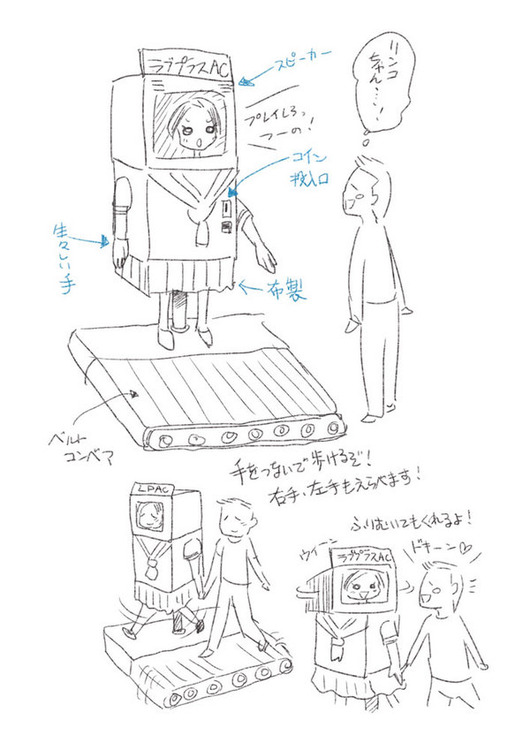 ラブプラスAC
スピーカー
リンコ
ちゃん…!
プレイしろっ
つーの!
コイン
投入口
生々しい手
布製
ベルト
コンベア
手をつないで歩けるぞ!
右手、左手もえらべます!
LPAC
ふりむいてもくれるよ!
ウィーン
ラブプラスAC
ドキーン♡